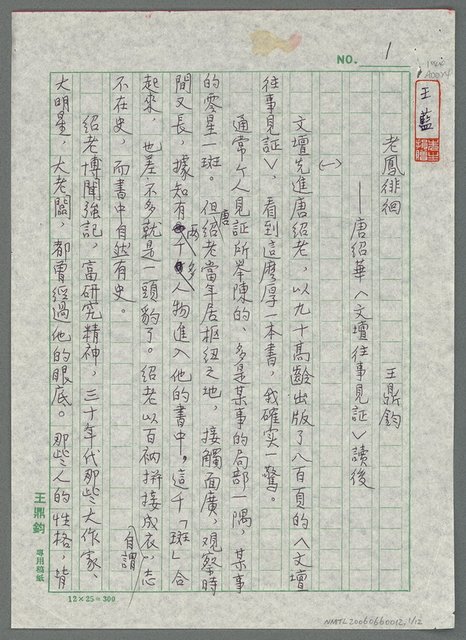 NO. 1
王藍
老鳳徘徊
——唐紹華〈文壇往事見証〉讀後
王鼎鈞
(一)
文壇先進唐紹老，以九十高齡出版了八百頁的〈文壇
往事見証〉，看到這麼厚一本書，我確實一驚。
通常个人見証所舉陳的，多是某事的局部一隅，某事
的零星一斑。但唐紹老當年居樞紐之地，接觸面廣，觀察時
間又長，據知有兩千多人物進入他的書中，這千「斑」合
起來，也差不多就是一頭豹了。紹老以百衲拼接成衣，自謂志
不在史，而書中自然有史。
紹老博聞強記，富研究精神，三十年代那些大作家、
大明星，大老闆，都曾經過他的眼底。那些人的性格，背
王鼎鈞 專用稿紙
12×25=300
NMTL20060660012, 1/12